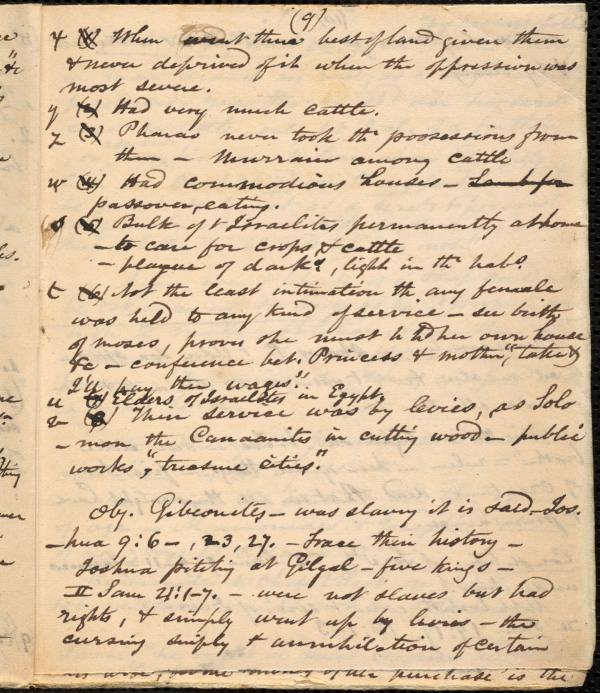 (9)
x (1) When went there best of land given them
& never deprived of it when the oppression was
most severe.
y (2) Had very much cattle.
z (3) Pharao never took the possessions from
them - Murrain among cattle
w (4) Had commodious houses - Lamb for
passover, eating.
(5) Bulk of Israelites permanently at home
- to care for crops, & cattle
- plague of dark, light in the
t (6) Not the least intimation th. any female
was held to any kind of service - see birth
of moses, proves she must h had her own house
&c - conference bet. Princess & mother, "take &
I'll pay thee wages".
u Elders of Israelites in Egypt.
v (8) Their service was by levies, as Solo
- mon the Canaanites in cutting wood - public
works, "treasure cities."
Obj. Gibeonites - was slavery it is said - Jos.
- hua 9:6 - , 23, 27. - Trace their history -
Joshua pitching at Gilgal - five kings -
II Sam 21:1-7. - were not slaves but had
rights, & simply went up by levies - the
cursing simply + annihilation of certain
purchase is the